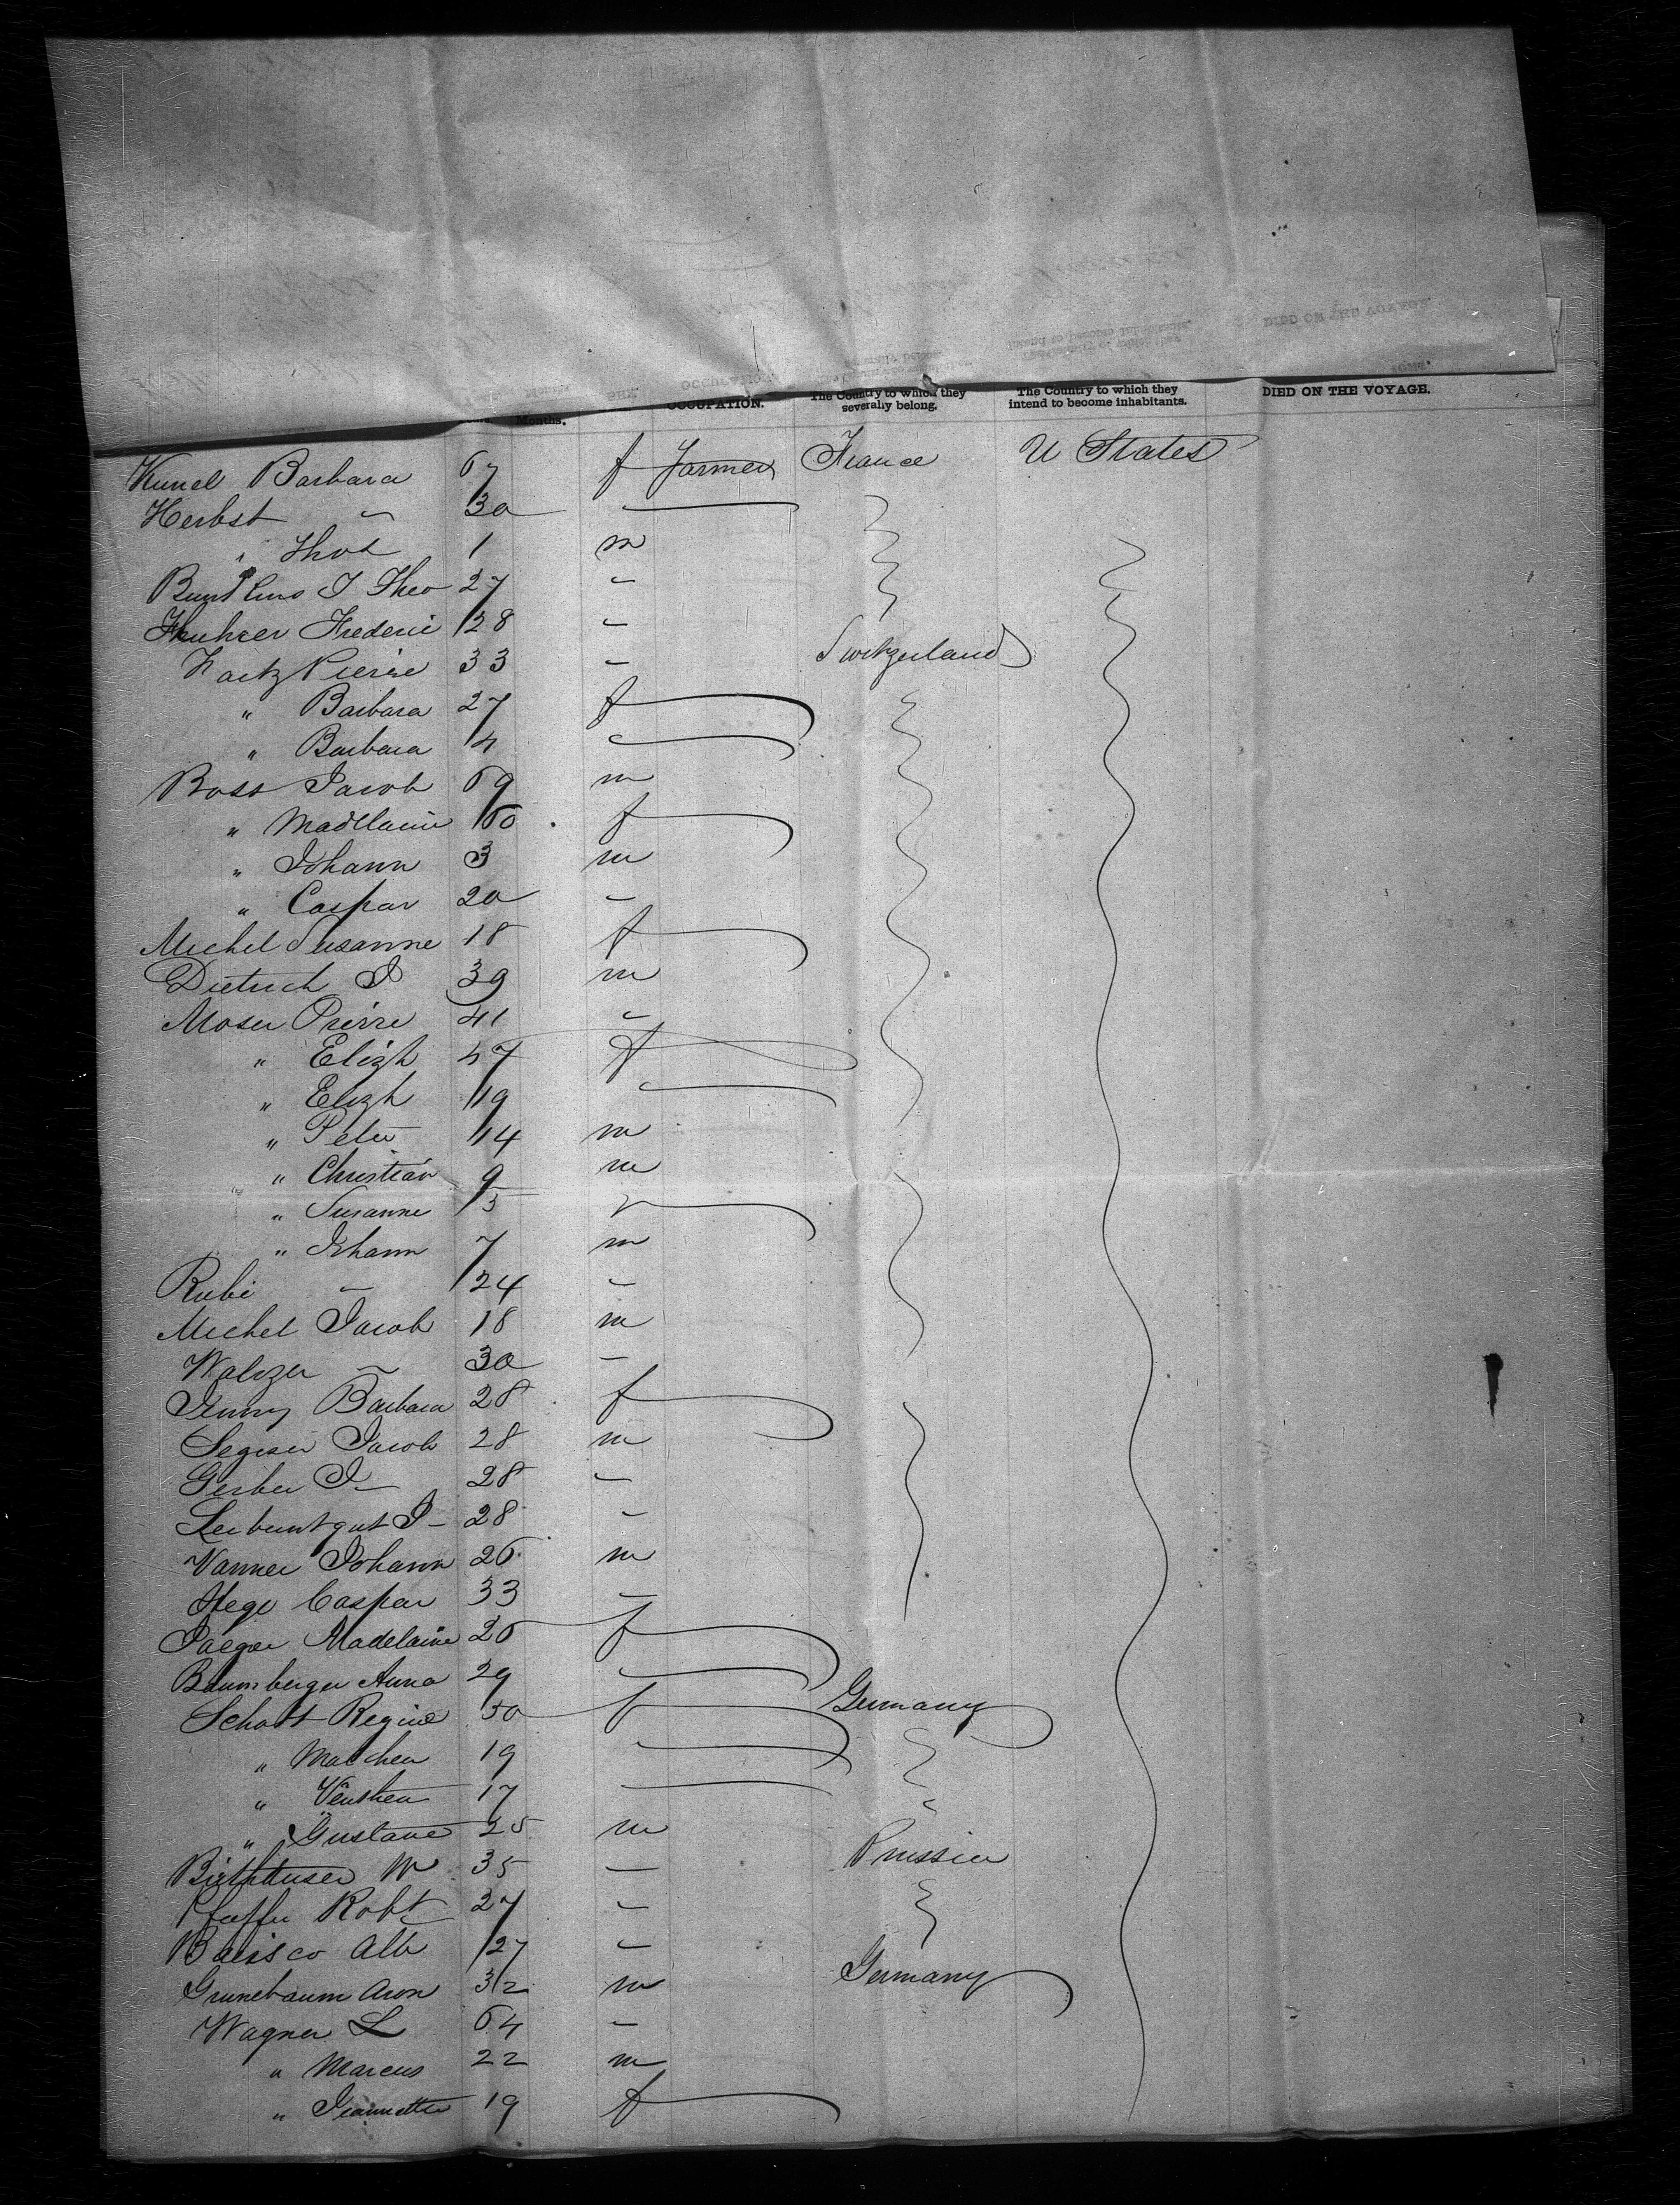 Months. OCCUPATION. The Country to which they severally belong. The Country to which they intend to become inhabitants. DIED ON THE VOYAGE.
Kunel Barbara 67 f Farmer France U States
Herbst " 30 "
" Thos 1 m
J Theo 27 "
Frederic 28 "
Pierre 33 " Switzerland
" Barbara 27 f
" Barbara 4 "
Boss Jacob 69 m
" Madelaine 60 f
" Johann 3 m
" Caspar 20 "
Michel Susanne 18 f
Dietrich J 39 m
Moser Pierre 41 "
" Elizh 47 f
" Elizh 19 "
" Peter 14 m
" Christian 9 m
" Susanne 5
" Johann 7 m
Rubi " 24 "
Michel Jacob 18 m
Walzer " 30 "
Jenny Barbara 28 f
Segiser Jacob 28 m
Gerber J 28 "
Leibuntgut J 28 "
Wanner Johann 26 m
Hege Caspar 33 "
Jaeger Madelaine 26 f
Baumberger Anna 29 "
Schott Regine 50 f Germany
" Malchen 19 "
" 17 "
" Gustave 25 m
W 35 " Prussia
Robt 27 "
Alb 27 "
Grunebaum Aron 32 m Germany
Wagner L 64 "
" Marcus 22 m
" Jeannette 19 f